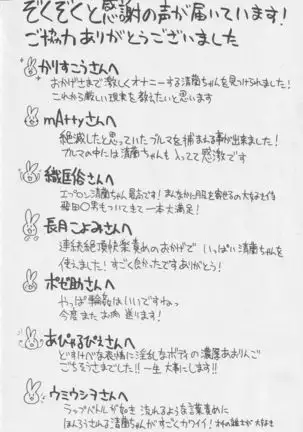 ぞくぞくと感謝の声が届いています!
ご協力ありがとうございました
かりすこうさんへ
おかげさまで激しくオナニーする清蘭ちゃんを見つけられました!
これから厳しい現実を教えたいと思います
mAttyさんへ
絶滅したと思っていたブルマを捕まえる事が出来ました!
ブルマの中には清蘭ちゃんも入ってて感激です
織匡俗さんへ
エプロン清蘭ちゃん最高です!
も満足!
長月こよみさんへ
連続絶頂快楽責めのおかげで いっぱい清蘭ちゃんを
使えました!すごく良かったですありがとう!
ポゼ助さんへ
やっぱ輪姦はいいですねっ
今度またお肉送ります!
あぴゅるぴえさんへ
どすけべな表情に淫乱なボディの濃厚あおりんご
ごちそうさまでした!!一生大事にします!
ウミウシヲさんへ
ラップバトルが如き流れるような言葉責めに
ほんろうされる清蘭ちゃんがすごくカワイイ!